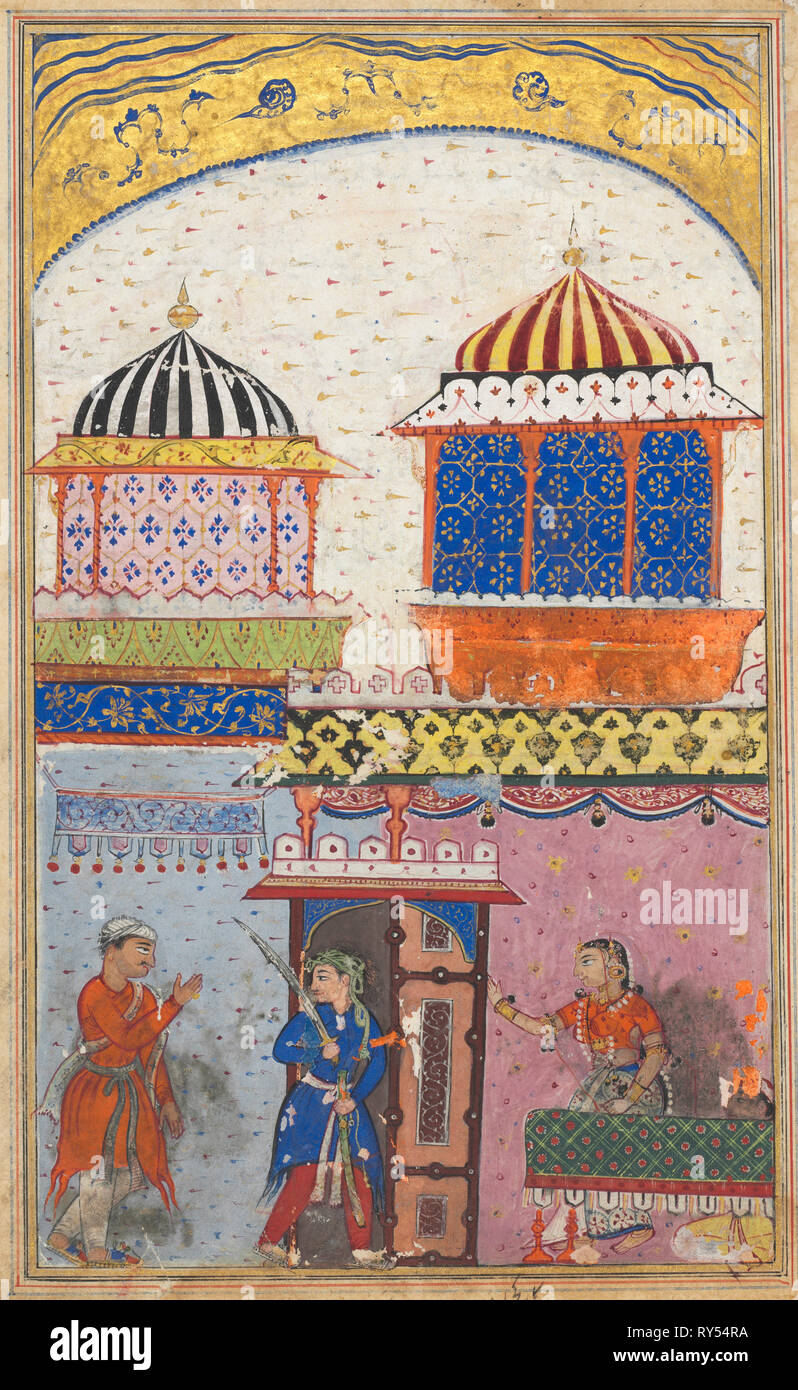 alamy
alamy
a
a
a
alamy
Image ID: RY54RA
www.alamy.com